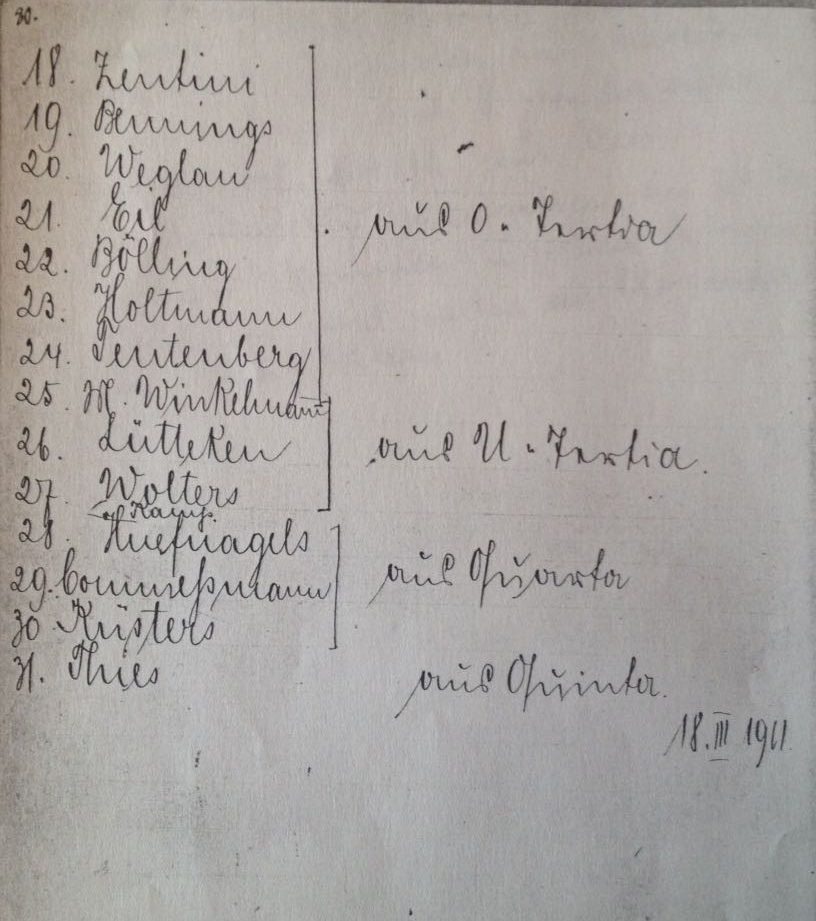 30.
18. Zentini
19. Bennings
20. Weglau
21. Eil
22. Bölling
aus O. Tertia
23. Holtmann
24. Tentenberg
25. W. Winkelmann
26. Lütteken
aus U. Tertia.
27. Wolters
Kamp.
28. Huefnagels
29. Commeßmann
aus Quarta
30 Küsters
31. Thies
aus Quinta.
18. III 1911.